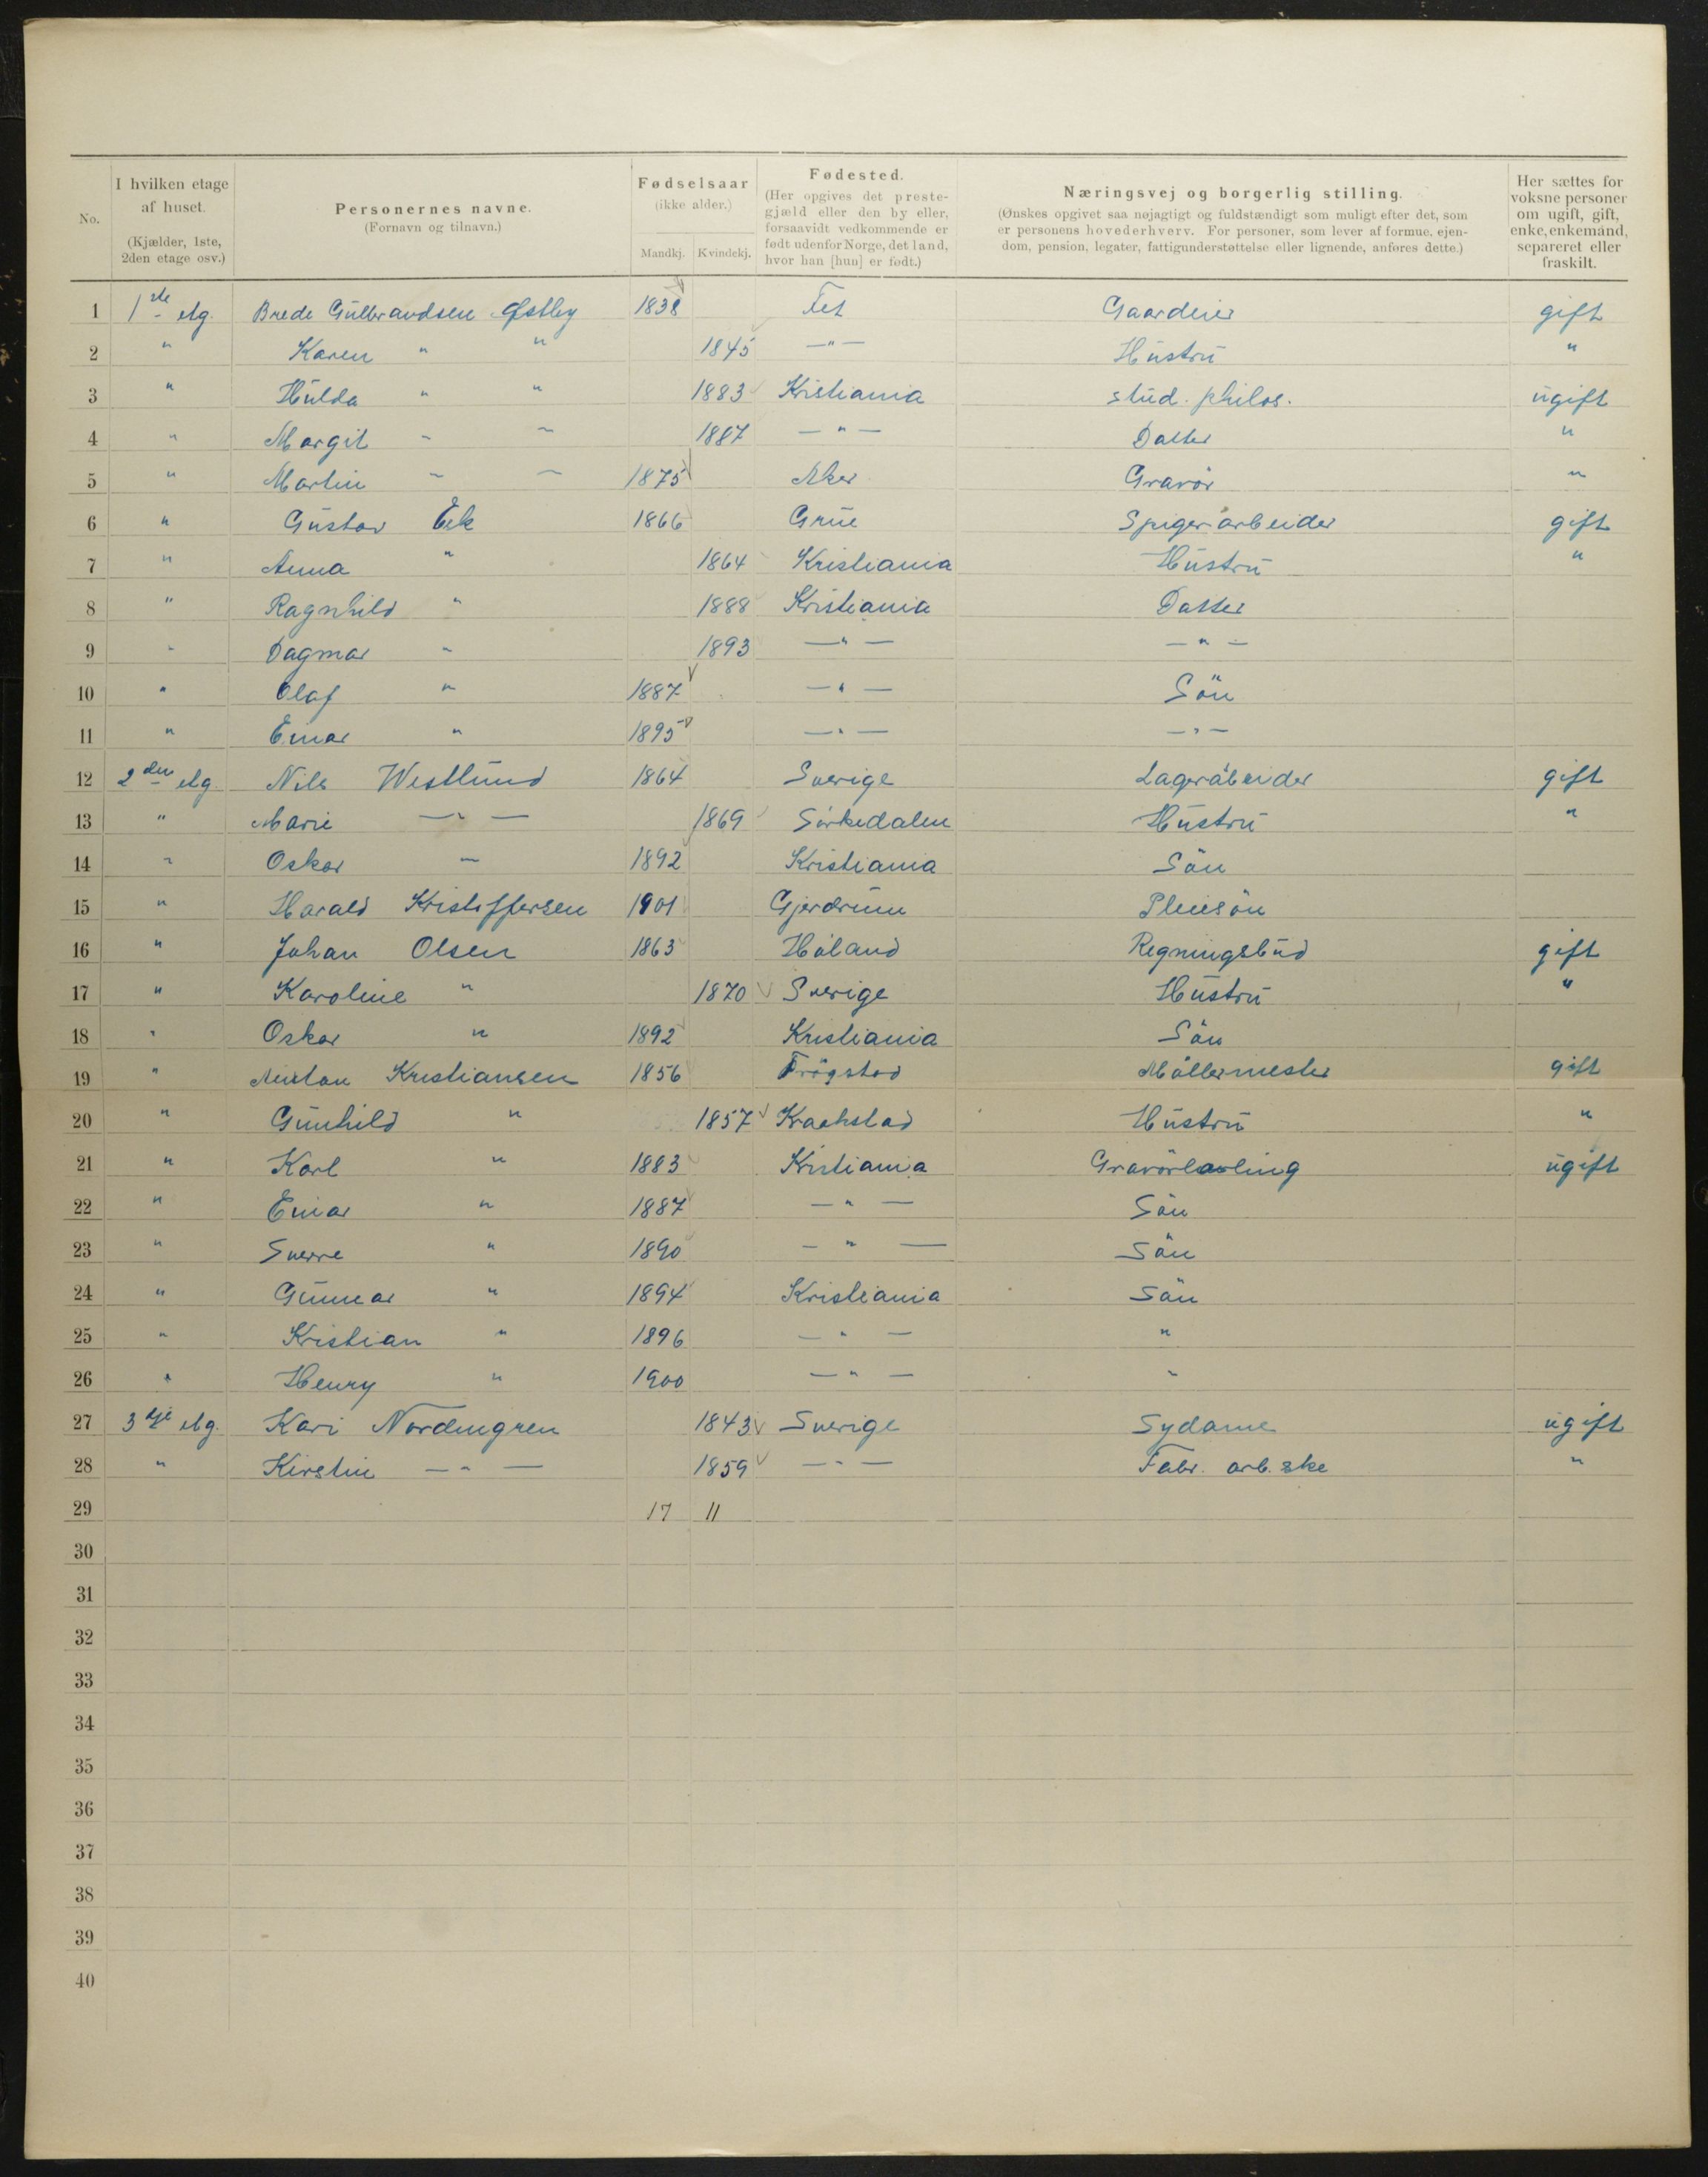 No. | I hvilken etage af huset. (Kjælder, 1ste, 2den etage osv.) | Personernes navne. (Fornavn og tilnavn.) | Fødselsaar (ikke alder.) Mandkj. | Kvindekj. | Fødested. (Her opgives det prestegjæld eller den by eller, forsaavidt vedkommende er født udenfor Norge, det land, hvor han [hun] er født.) | Næringsvej og borgerlig stilling. (Ønskes opgivet saa nøjagtigt og fuldstændigt som muligt efter det, som er personens hovederhverv. For personer, som lever af formue, ejendom, pension, legater, fattigunderstøttelse eller lignende, anføres dette.) | Her sættes for voksne personer om ugift, gift, enke, enkemand, separeret eller fraskilt.
1 1ste etg. Brede Gulbrandsen Østby 1838 Fet Gaardeier gift
2 " Karen " " 1845 —"— Hustru "
3 " Hulda " " 1883 Kristiania stud. philos. ugift
4 " Margit " " 1887 —"— Datter "
5 " Martin " " 1875 Aker Gravør "
6 " Gustav Eek 1866 Grue Spigerarbeider gift
7 " Anna " 1864 Kristiania Hustru "
8 " Ragnhild " 1888 Kristiania Datter
9 " Dagmar " 1893 —"— —"—
10 " Olaf " 1887 —"— Sön
11 " Einar " 1895 —"— —"—
12 2den etg. Nils Westlund 1864 Sverige Lagerábeider gift
13 " Marie —"— 1869 Sörkedalen Hustru "
14 " Oskar — 1892 Kristiania Sön
15 " Harald Kristoffersen 1901 Gjerdrum Pleiesön
16 " Johan Olsen 1863 Höland Regningsbud gift
17 " Karoline " 1870 Sverige Hustru "
18 " Oskar " 1892 Kristiania Sön
19 " Anton Kristiansen 1856 Trögstad Möllermester gift
20 " Gunhild " 1857 Kraakstad Hustru "
21 " Karl " 1883 Kristiania Gravörlærling ugift
22 " Einar " 1887 —"— Sön
23 " Sverre " 1890 —"— Sön
24 " Gunnar " 1894 Kristiania Sön
25 " Kristian " 1896 —"— "
26 " Henry " 1900 —"— "
27 3dje etg. Kari Nordengren 1843 Sverige Sydame ugift
28 " Kirstin —"— 1859 —"— Fabr. arb.ske "
29 17 11
30
31
32
33
34
35
36
37
38
39
40